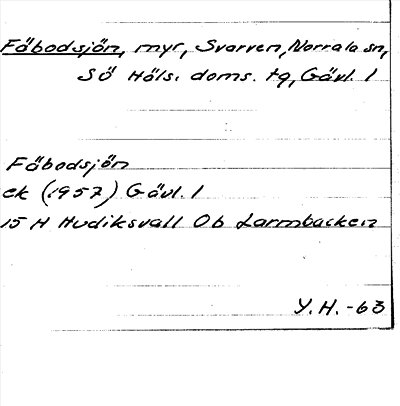 Fäbodsjön, myr, Svarven, Norrala sn,
Sö Häls. doms. tg, Gävl. l
Fäbodsjön
ek (1957) Gävl. l
15 H Hudiksvall Ob Larmbacken
Y. H. -63